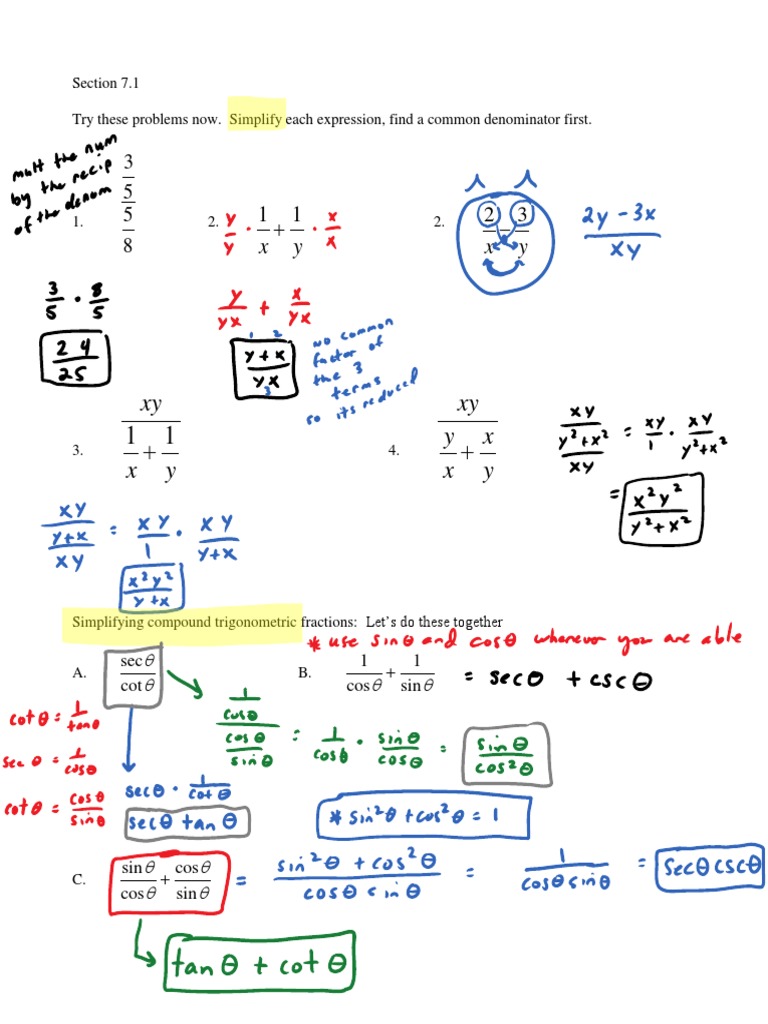 Section 7.1
Try these problems now. Simplify each expression, find a common denominator first.
mult the num
by the recip
of the denom
1. (3/5)/(5/8)
3/5 · 8/5
24/25
2. y/y · 1/x + 1/y · x/x
y/yx + x/yx
1 2
y+x/yx
3
no common
factor of
the 3
terms
so its reduced
2. 2/x - 3/y
2y - 3x/xy
3. xy/(1/x + 1/y)
xy/((y+x)/xy) = xy/1 · xy/(y+x)
x²y²/(y+x)
4. xy/(y/x + x/y)
xy/((y²+x²)/xy) = xy/1 · xy/(y²+x²)
= x²y²/(y²+x²)
Simplifying compound trigonometric fractions: Let's do these together
* use sinθ and cosθ whenever you are able
A. secθ/cotθ
cotθ = 1/tanθ
sec θ = 1/cosθ
cotθ = cosθ/sinθ
(1/cosθ)/(cosθ/sinθ) = 1/cosθ · sinθ/cosθ = sinθ/cos²θ
secθ · 1/cotθ
secθ tanθ
B. 1/cosθ + 1/sinθ = secθ + cscθ
* sin²θ + cos²θ = 1
C. sinθ/cosθ + cosθ/sinθ = (sin²θ + cos²θ)/(cosθ sinθ) = 1/(cosθ sinθ) = secθ cscθ
tanθ + cotθ